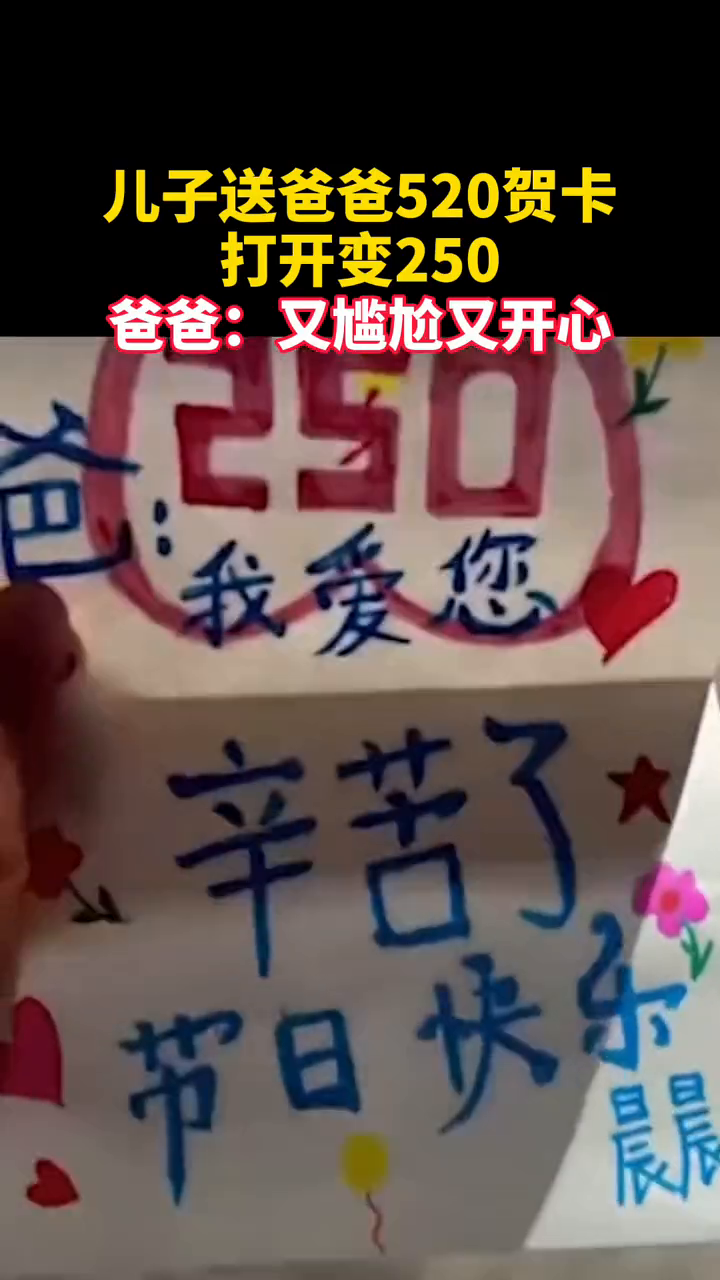 儿子送爸爸520贺卡
打开变250
爸爸：又尴尬又开心
250
爸：
我爱您
辛苦了
节日快乐
晨晨